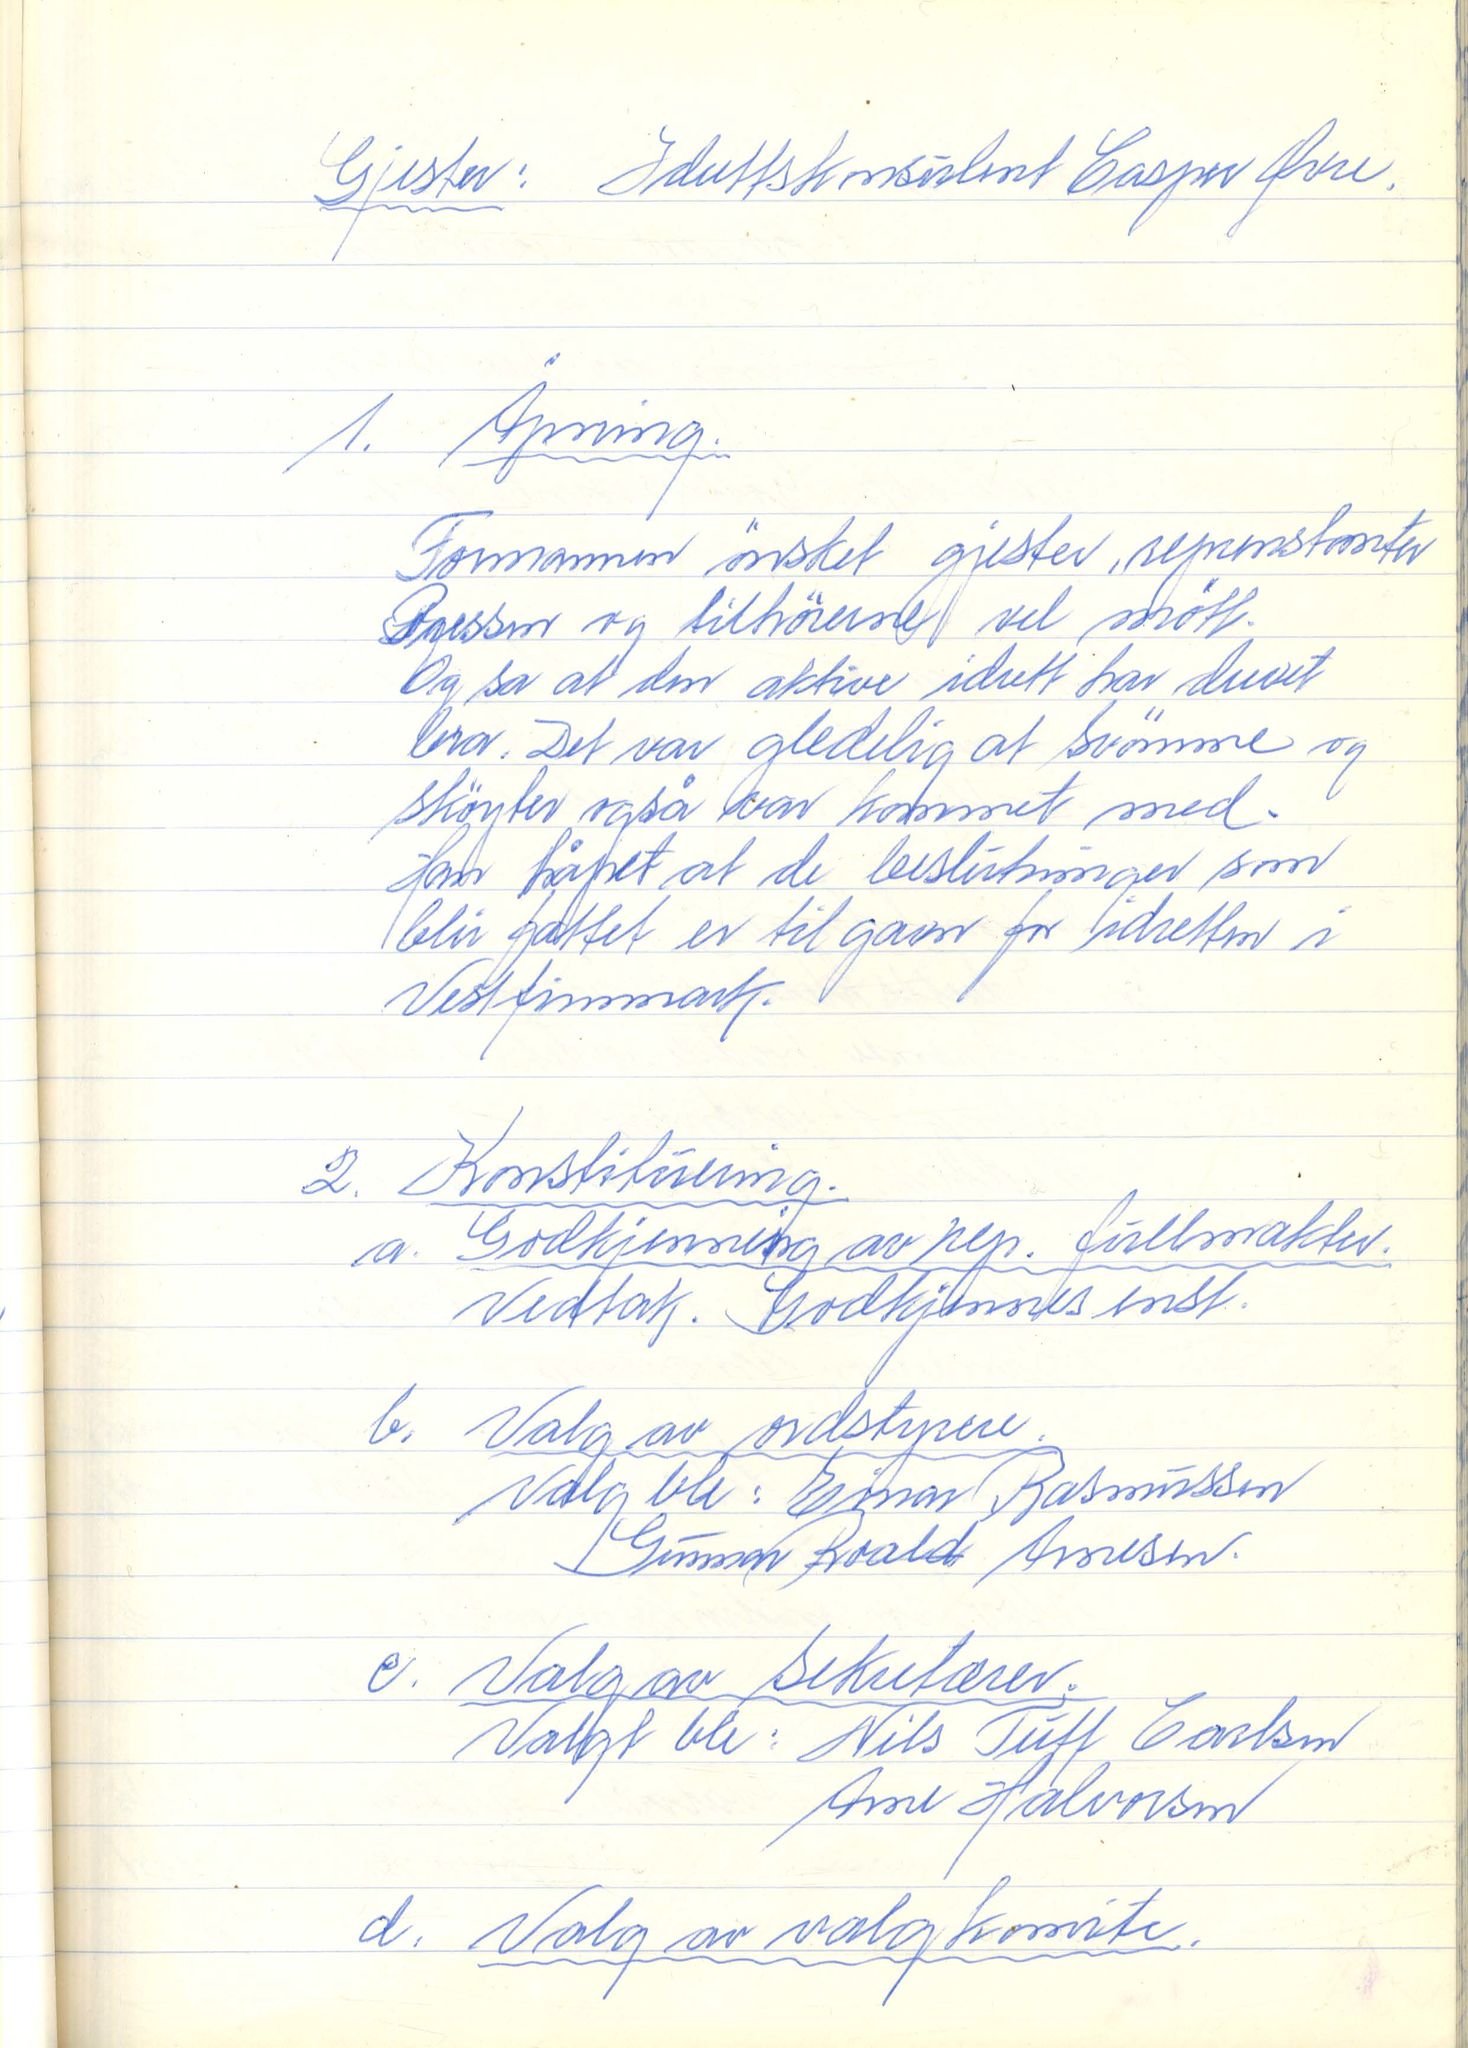 Gjester: Idrettskonsulent Casper Øvre.
1. Åpning.
Formannen önsket gjester, reprenstanter
Pressen og tilhörerne vel mött.
Og sa at den aktive idrett har drevet
bra. Det var gledelig at Svömme og
sköyter også var kommet med.
Han håpet at de beslutninger som
blir fattet er til gavn for idretten i
Vestfinnmark.
2. Konstituering.
a. Godkjenning av rep. fullmakter.
Vedtak. Godkjennes enst.
b. Valg av ordstyrere.
Valg ble: Einar Rasmussen
Gunnar Roald Arnesen.
c. Valg av Sekretærer.
Valgt ble: Nils Tuff Carlsen
Arne Halvorsen
d. Valg av valgkomite.